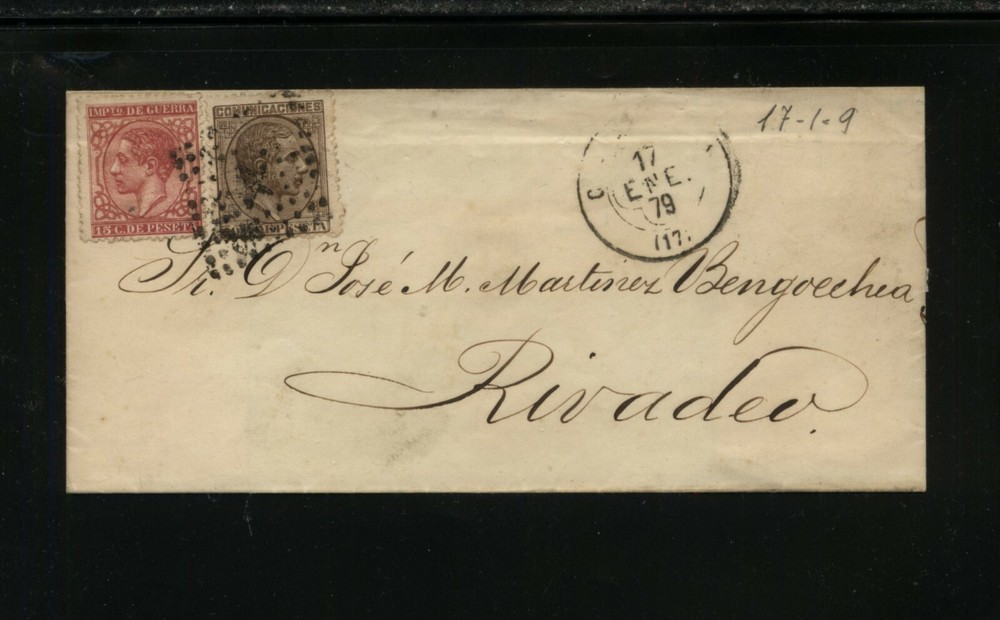 IMPTO DE GUERRA
15 C. DE PESETA
COMUNICACIONES
PESETA
17
ENE.
79
(17)
17-1-9
Sr. Dn José M. Martinez Bengoechea
Rivadeo.